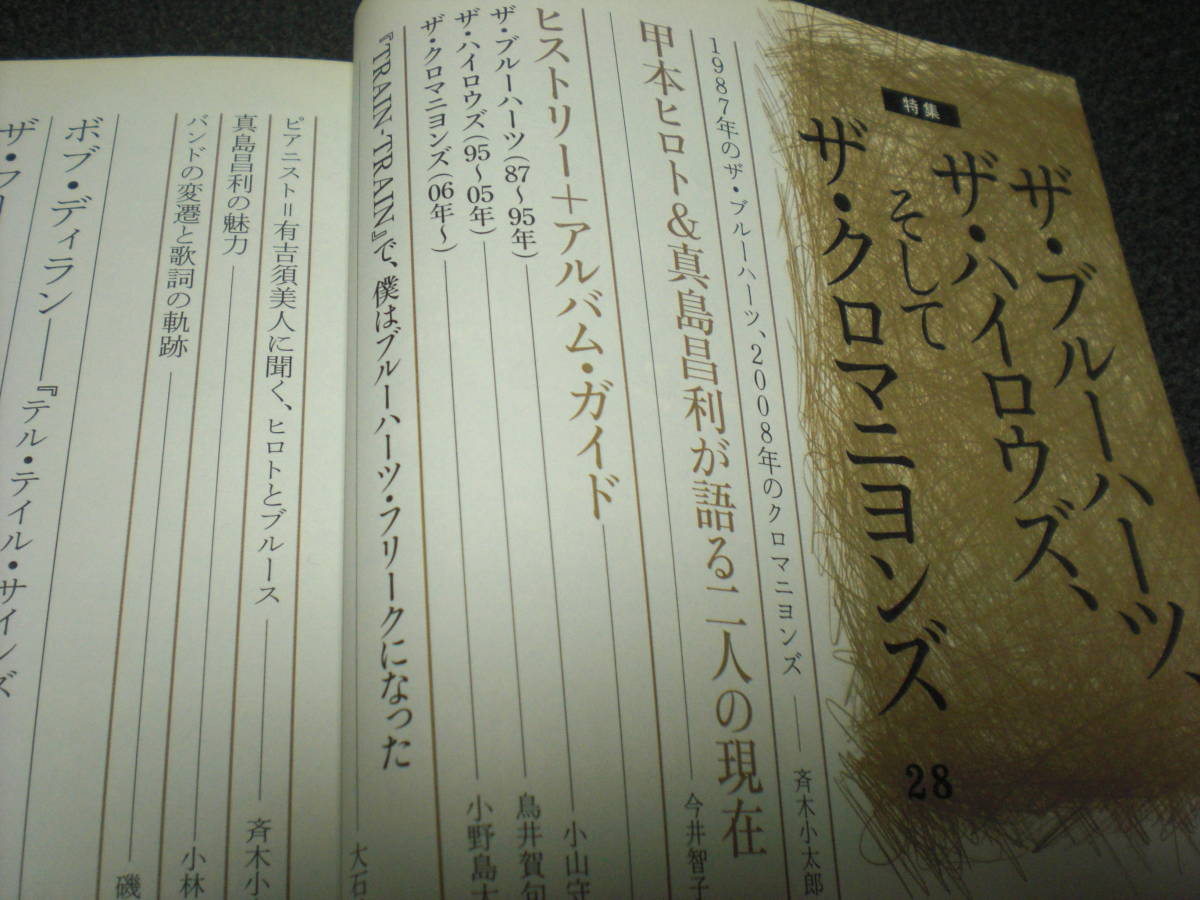 特集
ザ・ブルーハーツ、
ザ・ハイロウズ、
そして
ザ・クロマニヨンズ
28
1987年のザ・ブルーハーツ、2008年のクロマニヨンズ――斉木小太郎
甲本ヒロト&真島昌利が語る二人の現在――今井智子
ヒストリー+アルバム・ガイド――小山守
ザ・ブルーハーツ(87〜95年)――鳥井賀句
ザ・ハイロウズ(95〜05年)――小野島大
ザ・クロマニヨンズ(06年〜)
『TRAIN-TRAIN』で、僕はブルーハーツ・フリークになった――大石
ピアニスト=有吉須美人に聞く、ヒロトとブルース――斉木小
真島昌利の魅力――小林
バンドの変遷と歌詞の軌跡――磯
ボブ・ディラン――『テル・テイル・サインズ